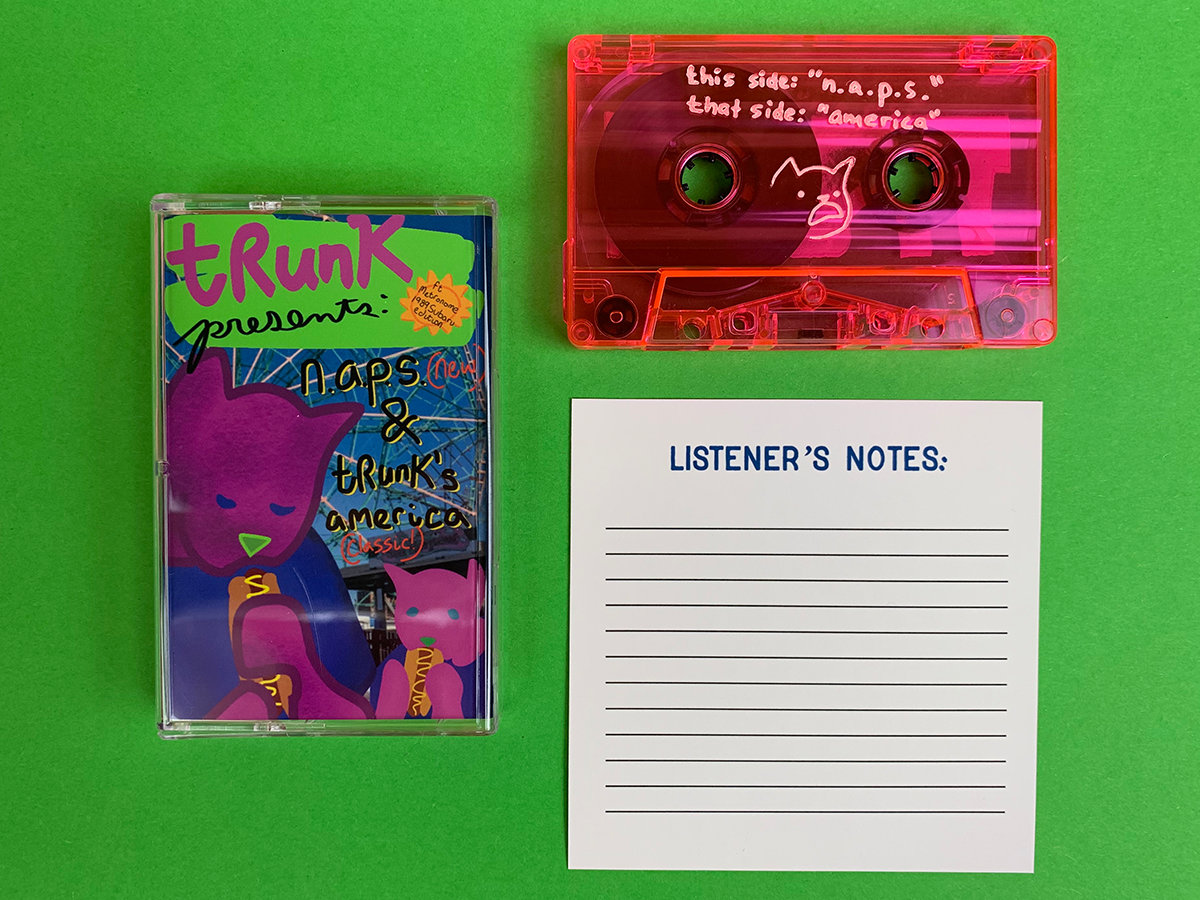 tRunK
presents:
ft
Metronome
1989 Subaru
edition
n.a.p.s. (new)
&
tRunK's
america
(classic!)
this side: "n.a.p.s."
that side: "america"
S
LISTENER'S NOTES: